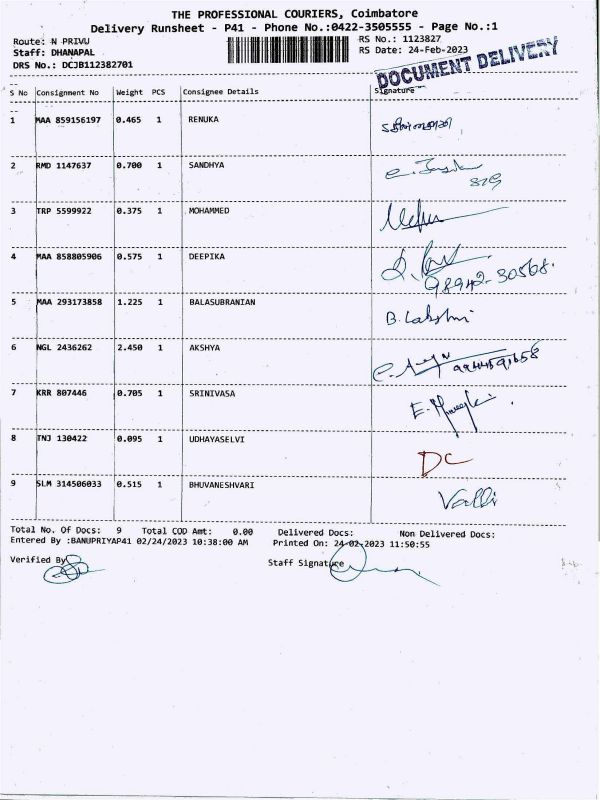 THE PROFESSIONAL COURIERS, Coimbatore
Delivery Runsheet - P41 - Phone No.:0422-3505555 - Page No.:1
Route: N PRIVU
RS No.: 1123827
Staff: DHANAPAL
RS Date: 24-Feb-2023
DRS No.: DCJB112382701
DOCUMENT DELIVERY
S No Consignment No Weight PCS Consignee Details Signature
1 MAA 859156197 0.465 1 RENUKA
2 RMD 1147637 0.700 1 SANDHYA
3 TRP 5599922 0.375 1 MOHAMMED
4 MAA 858805906 0.575 1 DEEPIKA
98942-30568.
5 MAA 293173858 1.225 1 BALASUBRANIAN B. Lakshmi
6 NGL 2436262 2.450 1 AKSHYA
7 KRR 807446 0.705 1 SRINIVASA
8 TNJ 130422 0.095 1 UDHAYASELVI DC
9 SLM 314506033 0.515 1 BHUVANESHVARI Valli
Total No. Of Docs: 9 Total COD Amt: 0.00 Delivered Docs: Non Delivered Docs:
Entered By :BANUPRIYAP41 02/24/2023 10:38:00 AM Printed On: 24-02-2023 11:50:55
Verified By
Staff Signature